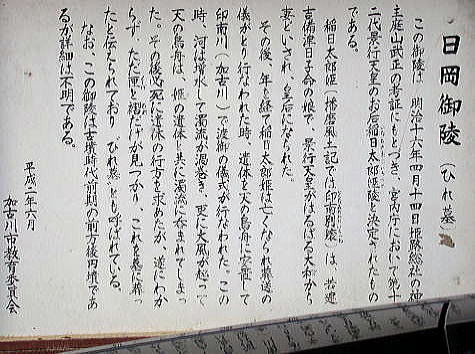 日岡御陵（ひれ墓）
この御陵は、明治十六年四月十四日姫路総社の神
主庭山武正の考証にもとづき、宮内庁において第十
二代景行天皇のお后稲日太郎姫陵と決定されたもの
である。
稲日太郎姫（播磨風土記では印南別嬢）は、若建
吉備津日子命の娘で、景行天皇がはるばる大和から
妻どいされ、皇后になられた。
その後、年を経て稲日太郎姫は亡くなられ葬送の
儀がとり行なわれた時、遺体を天の鳥舟に安置して
印南川（加古川）で渡御の儀式が行なわれた。この
時、河は増水して濁流が渦巻き、更に大風が起って
天の鳥舟は、姫の遺体と共に濁流に呑まれてしまっ
た。その後死に遺体の行方を求めたが、遂にわか
らず、ただ匣と褶だけが見つかり、これを墓に葬っ
たと伝えられており、"ひれ墓"とも呼ばれている。
なお、この御陵は古墳時代前期の前方後円墳であ
るが詳細は不明である。
平成二年六月
加古川市教育委員会